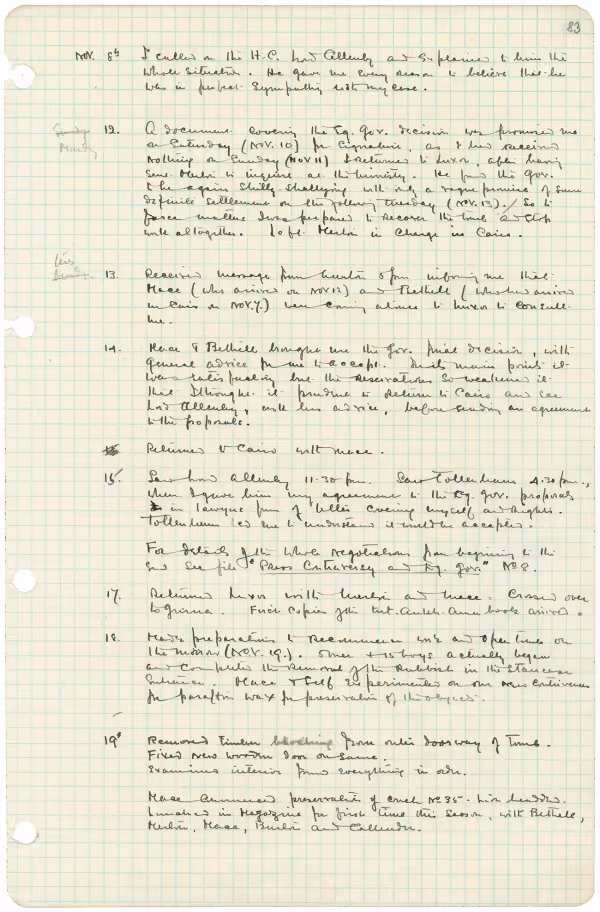 83
Nov. 8th I called on the H.C. Lord Allenby and explained to him the
whole situation. He gave me every reason to believe that he
was in perfect sympathy with my case.
Sunday
Monday
12. A document covering the Eg. Gov. decision was promised me
on Saturday (Nov. 10) for signature, as I had received
nothing on Sunday (Nov 11) I returned to Luxor, after having
sent Merton to inquire at the ministry. He found the Gov.
to be again shilly shallying with only a vague promise of some
definite settlement on the following Tuesday (Nov. 13). So to
force matters I was prepared to recover the tomb and stop
work altogether. Left Merton in charge in Cairo.
13. Received message from Merton 5 p.m. informing me that
Mace (who arrived on Nov 12) and Bethell (who had arrived
in Cairo on Nov. 7.) were coming at once to Luxor to consult
me.
14. Mace & Bethell brought me the Gov. final decision, with
general advice for me to accept. In its main points it
was satisfactory but the reservations so weakened it
that I thought it prudent to return to Cairo and see
Lord Allenby, ask his advice, before sending an agreement
to the proposals.
Returned to Cairo with Mace.
15. Saw Lord Allenby 11.30 p.m. Saw Tottenham 4.30 p.m.,
when I gave him my agreement to the Eg. Gov. proposals
in lawyer form of letter covering myself and rights.
Tottenham led me to understand it would be accepted.
For details of the whole negotiations from beginning to the
end see file "Press Controversy and Eg. Gov." No 8.
17. Returned Luxor with Merton and Mace. Crossed over
to Gurna. First copies of the Tut.Ankh.Amen book arrived.
18. Made preparations to recommence work and open tomb on
the morrow (Nov. 19.). men & 15 boys actually began
and completed the removal of the rubbish in the staircase
entrance. Mace & self experimented on our contrivances
for paraffin wax for preservation of the objects.
19th Removed timber blocking from outer doorway of Tomb.
Fixed new wooden door on same.
Examined interior found everything in order.
Mace commenced preservation of couch No 35. Lion headed.
Lunched in Magazine for first time this season, with Bethell,
Merton, Mace, Burton and Callender.